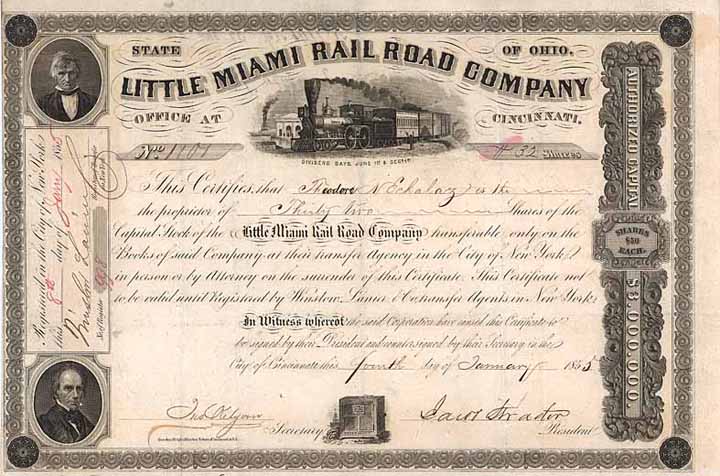 STATE OF OHIO.
LITTLE MIAMI RAIL ROAD COMPANY
OFFICE AT CINCINNATI.
DIVIDEND DAYS, JUNE 1ST & DEC. 1ST
No. 1101 32 Shares
This Certifies, that Theodore N Echalaz is the
the proprietor of Thirty two Shares of the
Capital Stock of the Little Miami Rail Road Company transferable only on the
Books of said Company at their transfer Agency in the City of New York
in person or by Attorney on the surrender of this Certificate. This Certificate not
to be valid until Registered by Winslow, Lanier & Co. transfer Agents in New York.
In Witness whereof the said Corporation have caused this Certificate to
be signed by their President and countersigned by their Secretary in the
City of Cincinnati this fourth day of January 1855
Jno Kilgour Jacob Strader
Secretary President
Registered in the City of New York
this 8th day of Jany 1855
Winslow Lanier
AUTHORIZED CAPITAL
SHARES
$50
EACH.
$3,000,000.